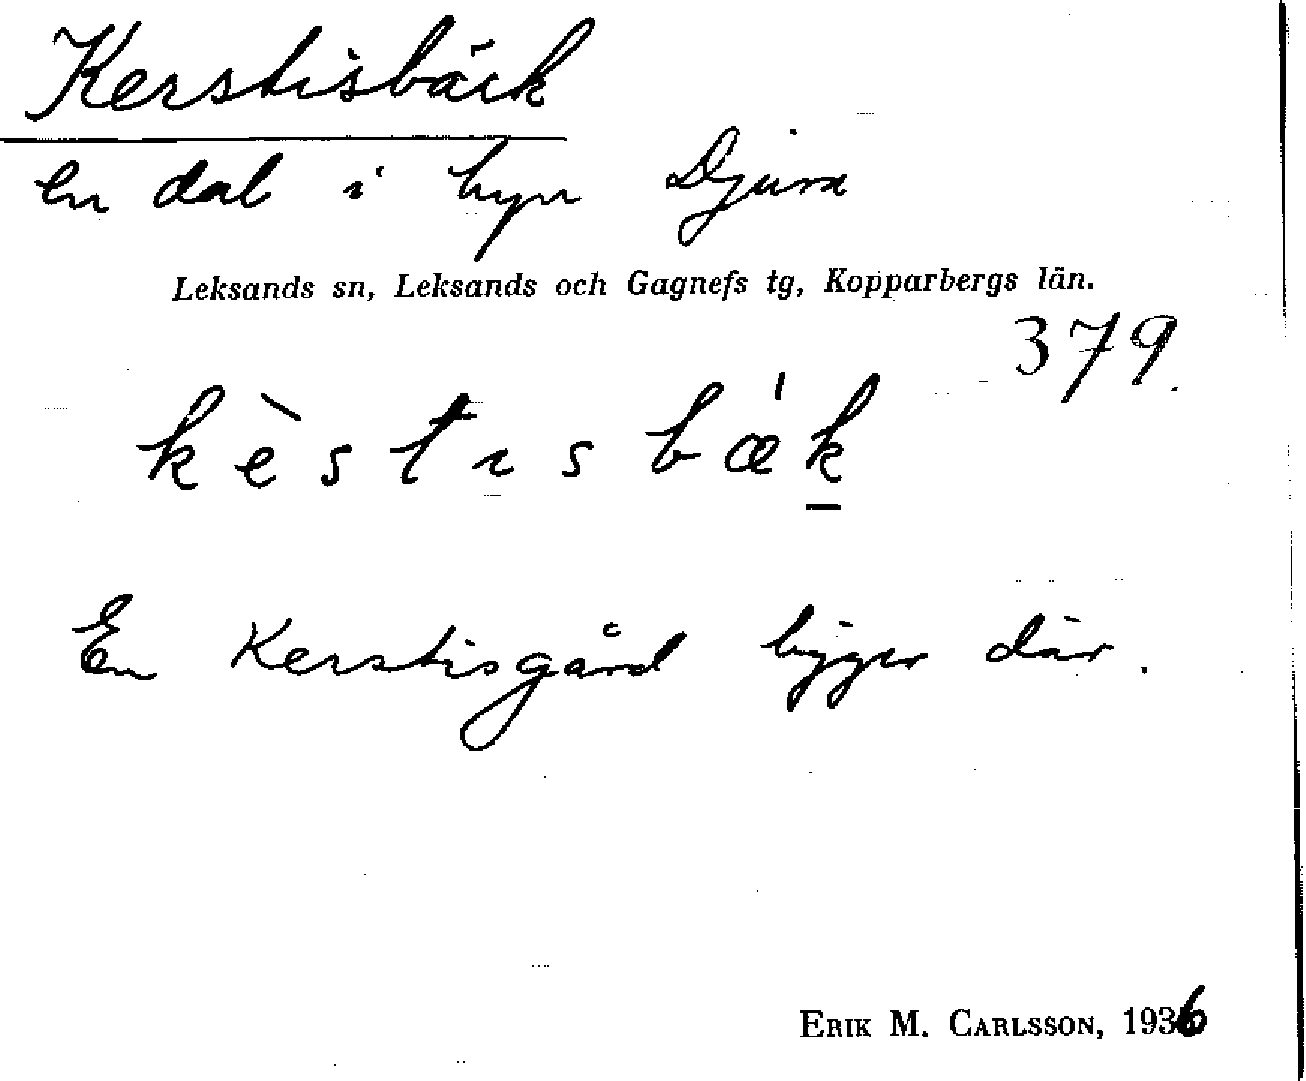 Kerstisbäck
en dal i byn Djura
Leksands sn, Leksands och Gagnefs tg, Kopparbergs län.
379.
kèstɪsbǽk̲
En Kerstisgård ligger där.
ERIK M. CARLSSON, 1936